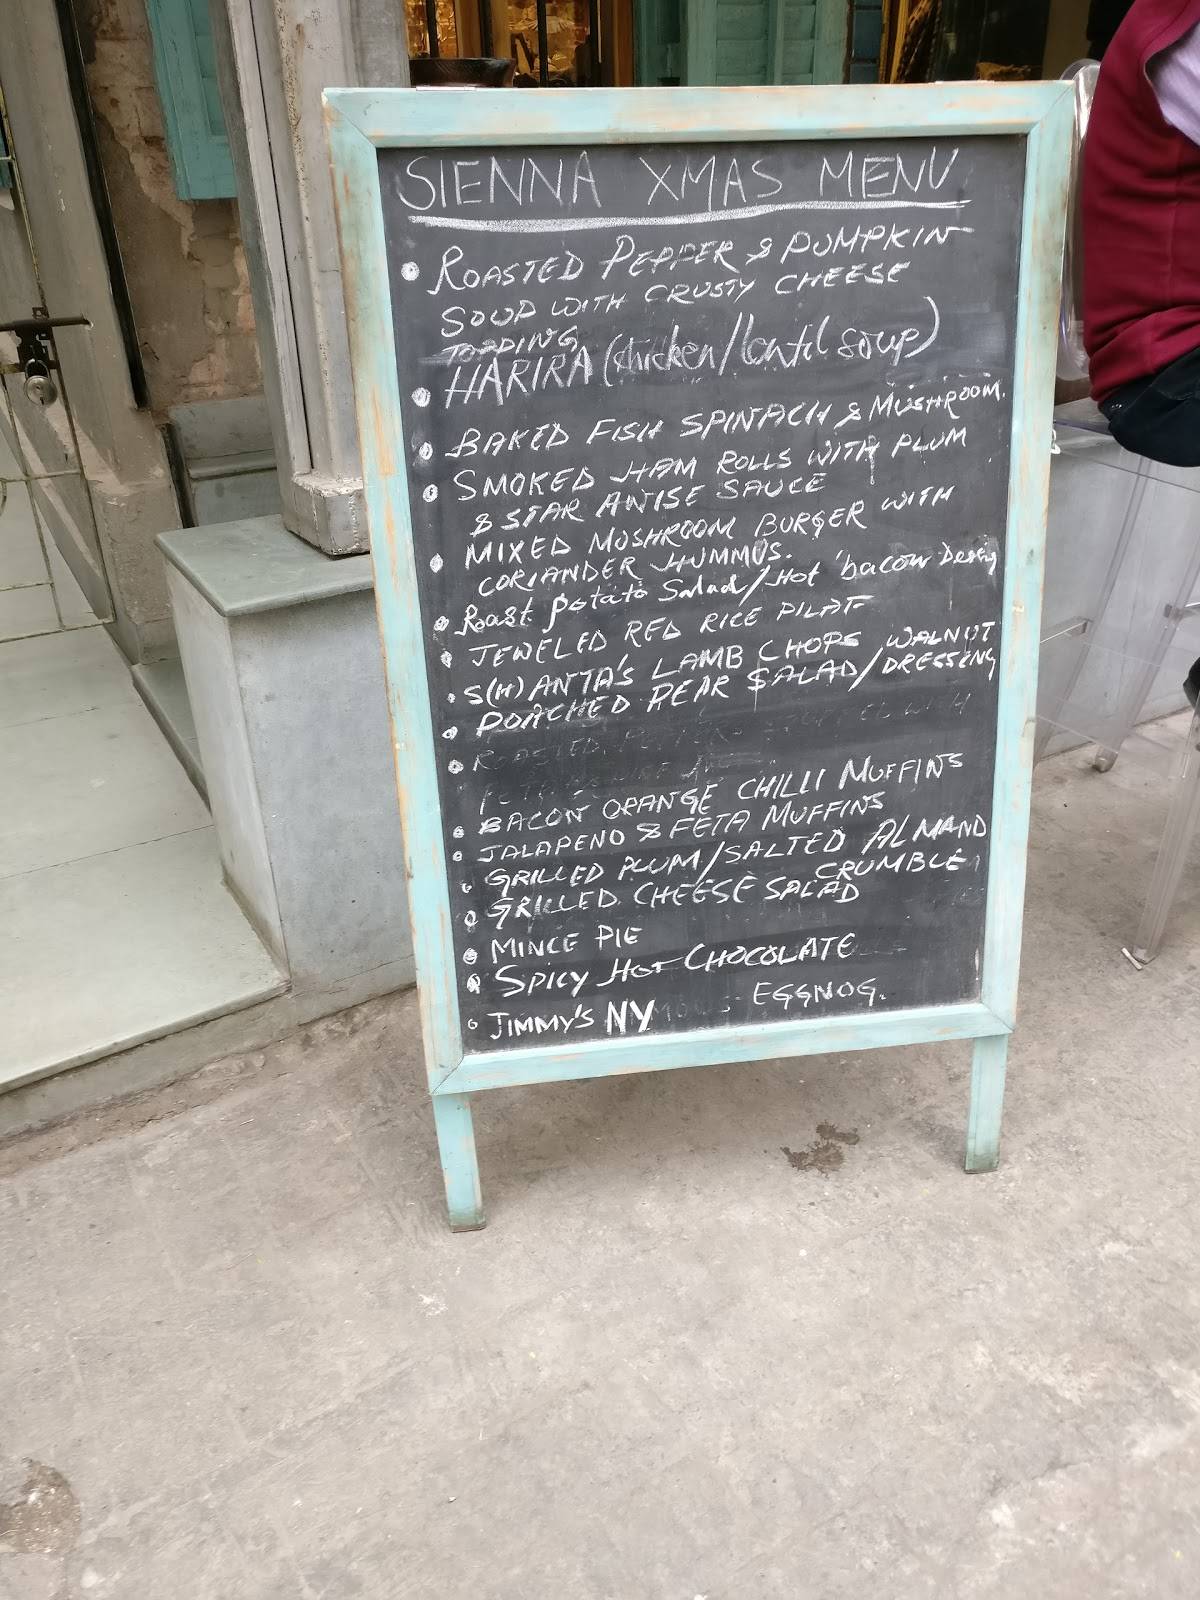 SIENNA XMAS MENU
ROASTED PEPPER & PUMPKIN
SOUP WITH CRUSTY CHEESE
TOPPING
HARIRA (chicken/lentil soup)
BAKED FISH SPINACH & MUSHROOM.
SMOKED HAM ROLLS WITH PLUM
& STAR ANISE SAUCE
MIXED MUSHROOM BURGER WITH
CORIANDER HUMMUS.
Roast potato Salad/Hot 'bacon
JEWELED RED RICE PILAF
S(H)ANTA'S LAMB CHOPS WALNUT
POACHED PEAR SALAD/DRESSING
ROASTED
BACON ORANGE CHILLI MUFFINS
JALAPENO & FETA MUFFINS
GRILLED PLUM/SALTED ALMAND
CRUMBLE
GRILLED CHEESE SALAD
MINCE PIE
SPICY HOT CHOCOLATE
JIMMY'S NY EGGNOG.